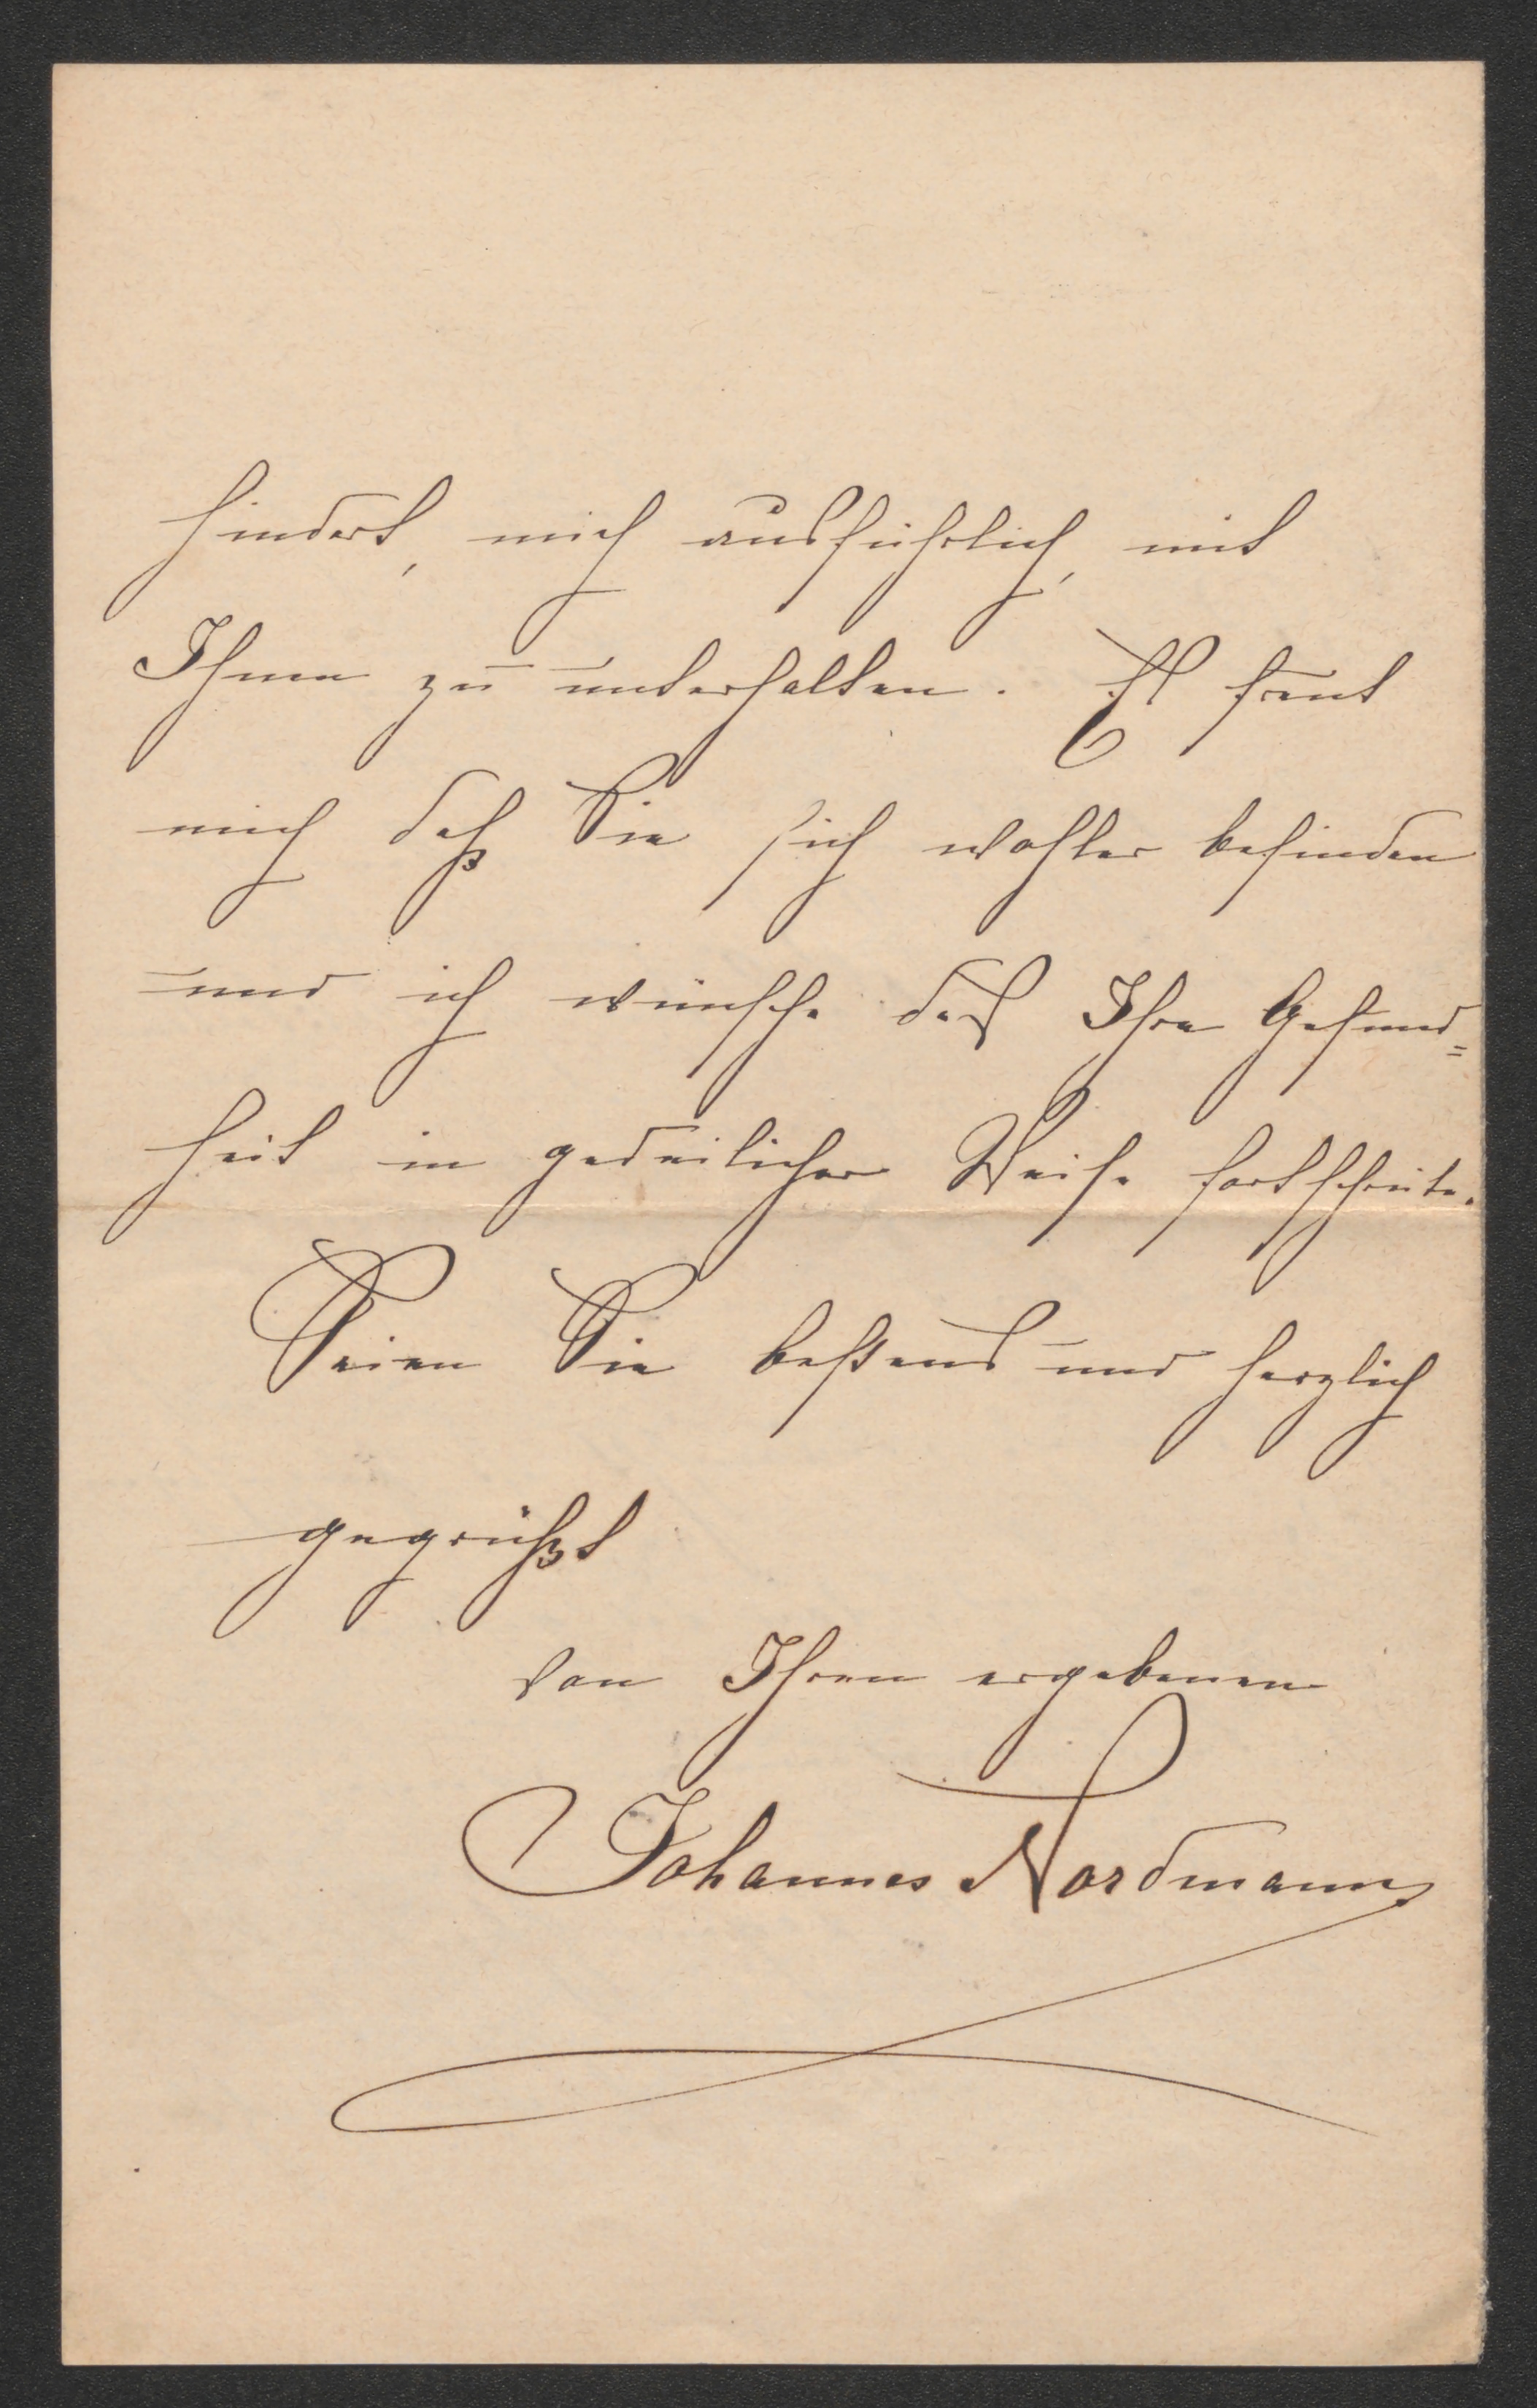 hindert, mich ausführlich, mit
Ihnen zu unterhalten. Es freut
mich daß Sie sich wohler befinden
und ich wünsche das Ihre Gesund=
heit in gedeilicher Weise fortschreite.
Seien Sie bestens und herzlich
gegrüßt
von Ihren ergebenen
Johannes Nordmann